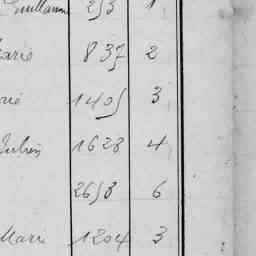 Guillaume 253 1
Marie 837 2
1405 3
Julien 1628 4
2658 6
Marie 1204 3